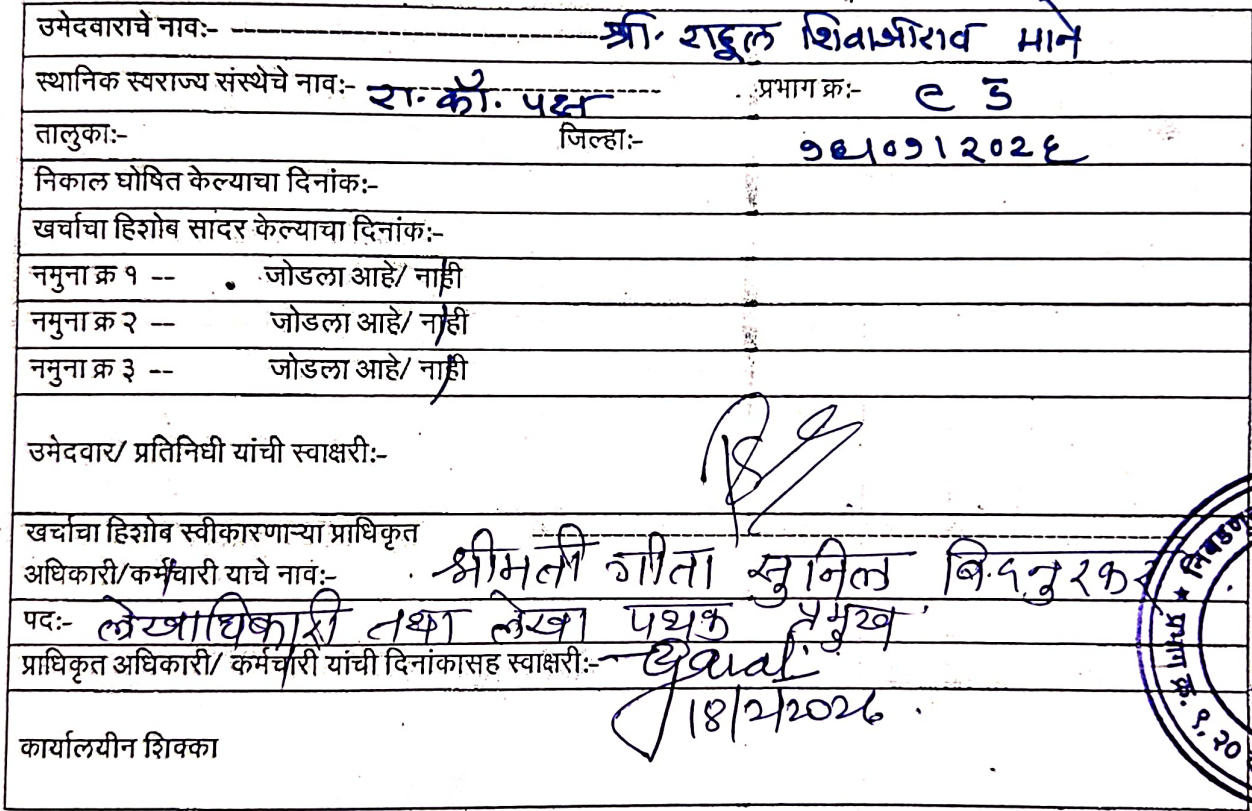 उमेदवाराचे नाव:- श्री. राहूल शिवाजीराव माने
स्थानिक स्वराज्य संस्थेचे नाव:- रा. काँ. पक्ष प्रभाग क्र:- ९ ड
तालुका:- जिल्हा:- १६/०१/२०२६
निकाल घोषित केल्याचा दिनांक:-
खर्चाचा हिशोब सादर केल्याचा दिनांक:-
नमुना क्र १ -- जोडला आहे/ नाही
नमुना क्र २ -- जोडला आहे/ नाही
नमुना क्र ३ -- जोडला आहे/ नाही
उमेदवार/ प्रतिनिधी यांची स्वाक्षरी:-
खर्चाचा हिशोब स्वीकारणाऱ्या प्राधिकृत
अधिकारी/कर्मचारी याचे नाव:- श्रीमती गीता सुनिल
पदः- लेखाधिकारी तथा लेखा पथक प्रमुख
प्राधिकृत अधिकारी/ कर्मचारी यांची दिनांकासह स्वाक्षरी:-
18/2/2026
कार्यालयीन शिक्का
प्रभाग क्र. ९, २०